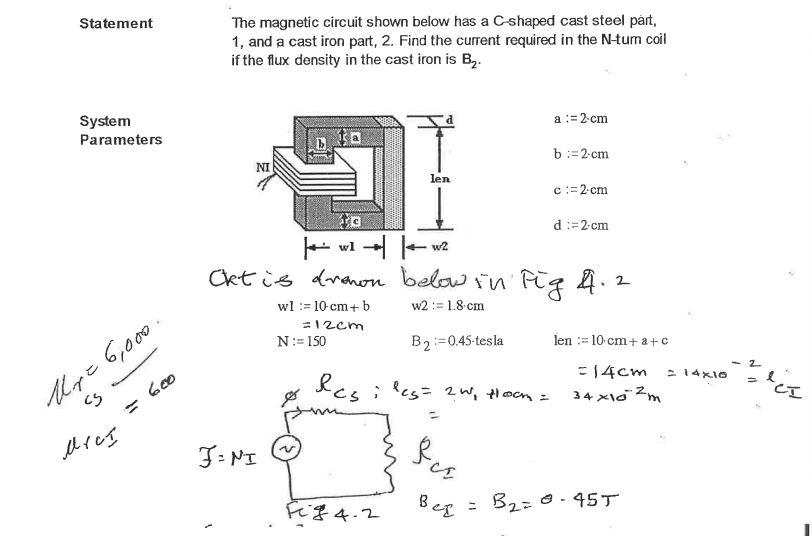 Statement The magnetic circuit shown below has a C-shaped cast steel part,
1, and a cast iron part, 2. Find the current required in the N-turn coil
if the flux density in the cast iron is B₂.
System
Parameters
a := 2·cm
b := 2·cm
c := 2·cm
d := 2·cm
d
a
b
NI
len
c
w1 w2
Ckt is drawn below in Fig 4.2
w1 := 10·cm + b w2 := 1.8·cm
= 12cm
N := 150 B₂ := 0.45·tesla len := 10·cm + a + c
= 14cm = 14×10⁻² = l_CI
μr_CS = 6,000
μrCI = 600
ϕ R_CS ; l_CS = 2w₁ + 10cm = 34×10⁻²m
=
F = NI R_CI
Fig 4.2 B_CI = B₂ = 0.45T